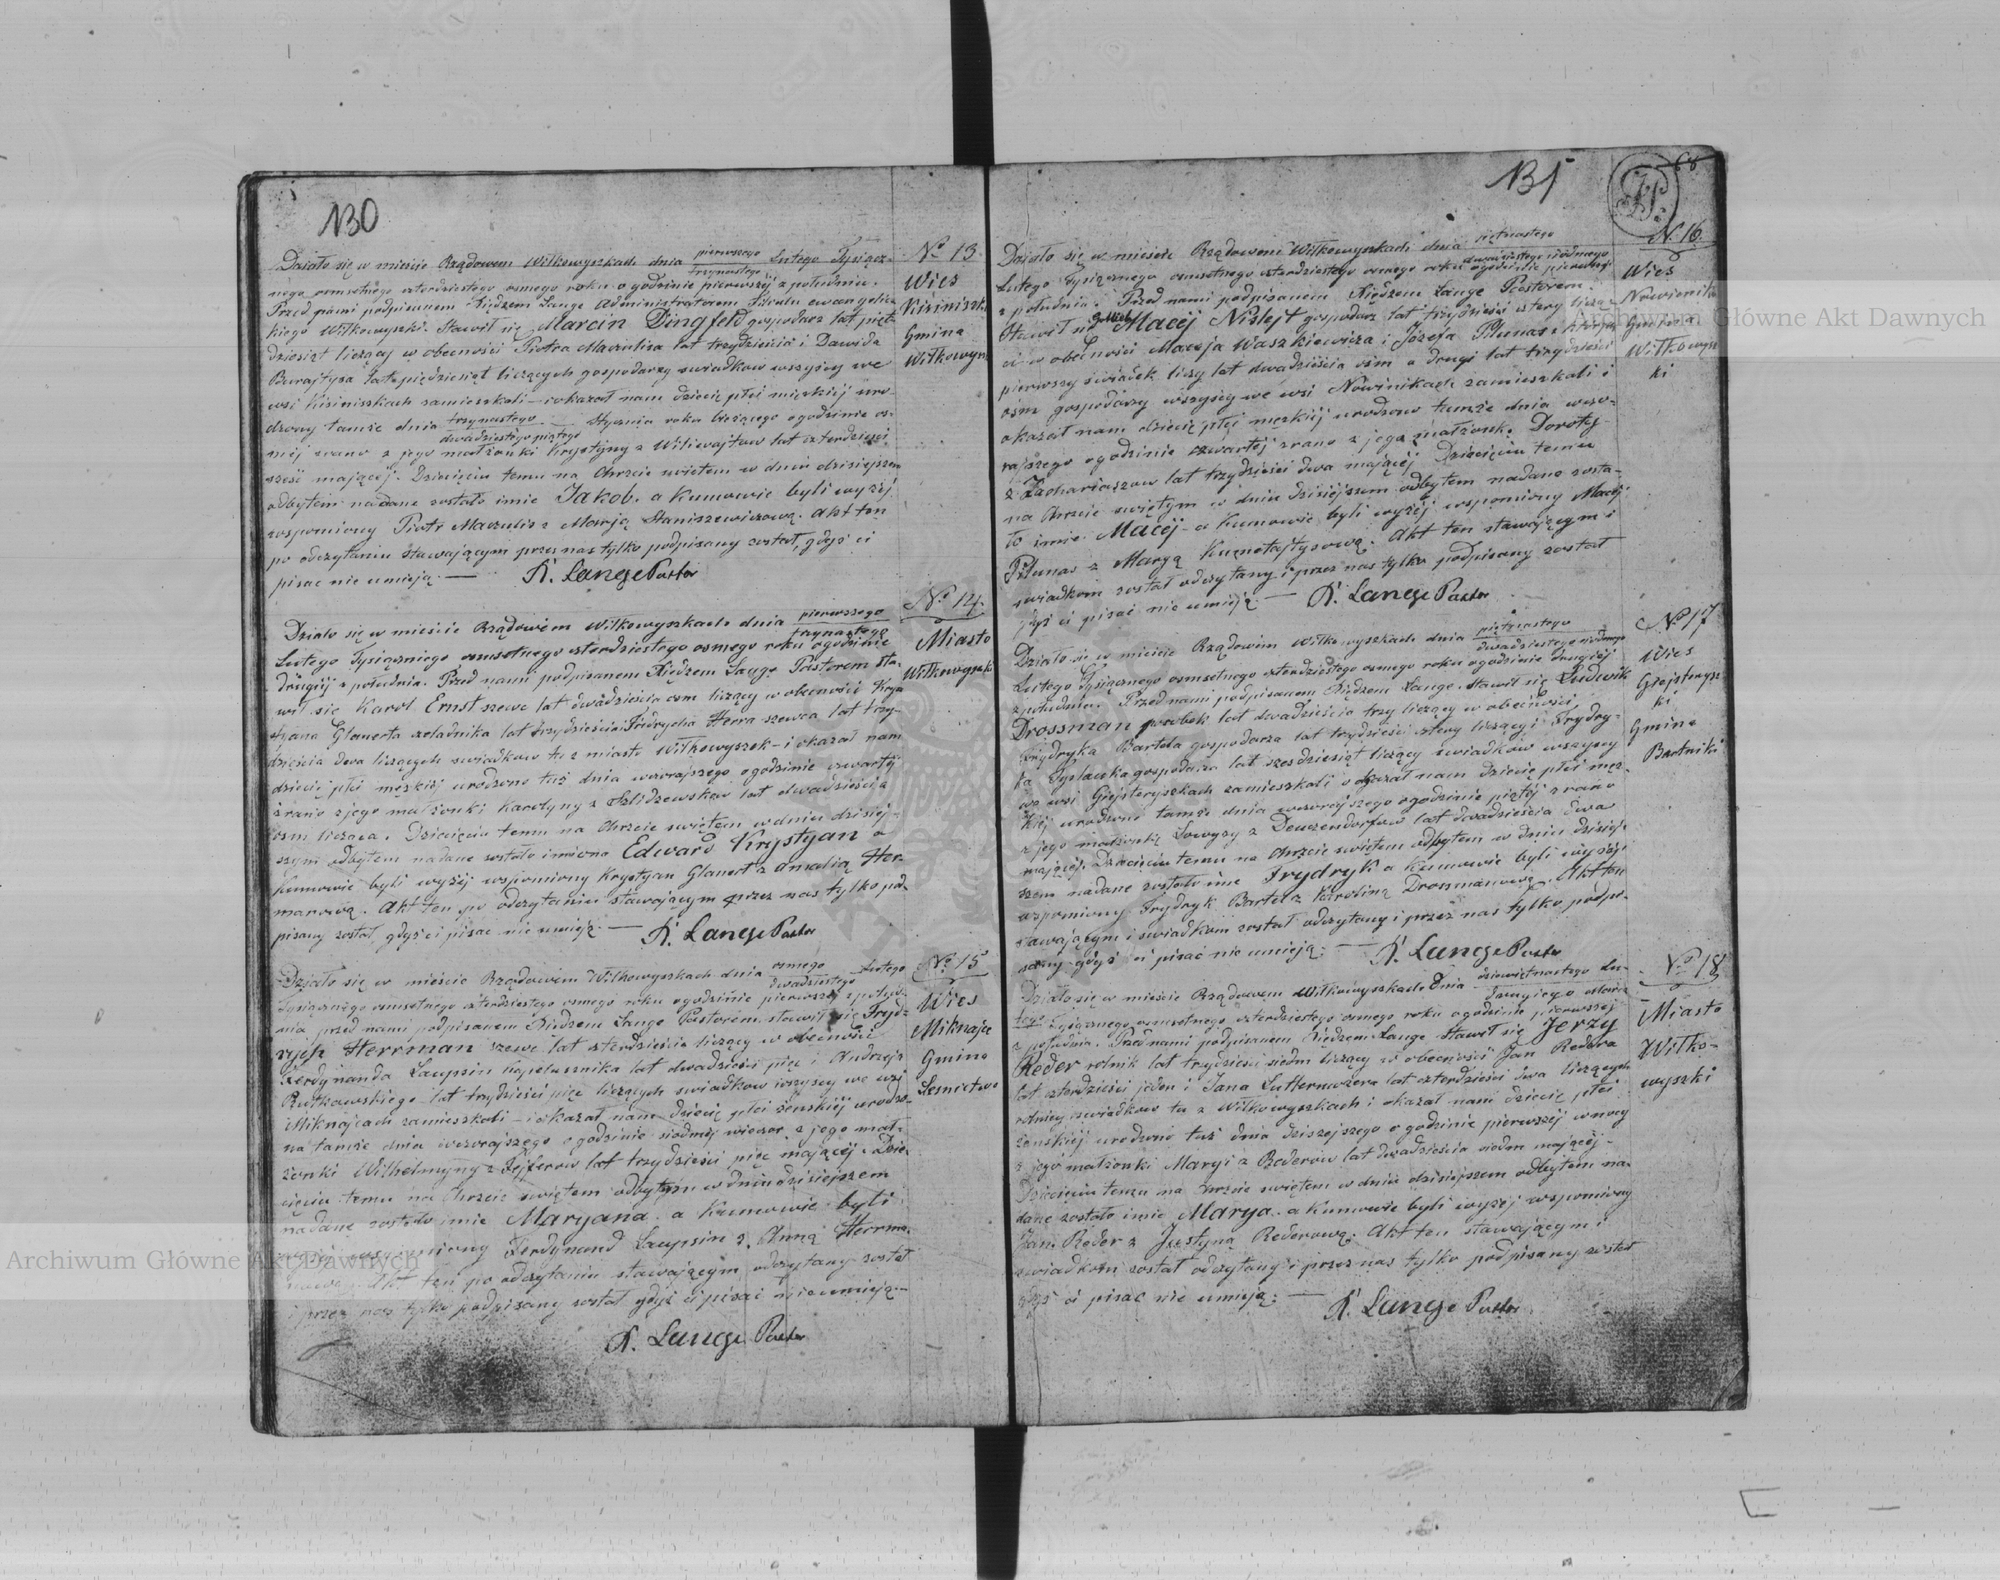 130
Działo się w mieście Rządowem Wiłkowyszkach dnia pierwszego / trzynastego Lutego Tysiącz-
nego osmsetnego czterdziestego osmego roku o godzinie pierwszéj z południa.
Przed nami podpisanem Xiędzem Lange Administratorem Filialu ewangelic-
kiego Wiłkowyszki. Stawił się Marcin Dingfeld gospodarz lat pięć-
dziesiąt liczący w obecności Piotra Maczulisa lat trzydzieścia i Dawida
Burajtysa lat pięćdziesiąt liczących gospodarzy swiadkow wszyscy we
wsi Kisiniszkach zamieszkali – i okazał nam dziecię płci męzkiéj uro-
dzony tamże dnia trzynastego / dwadziestego piątego Stycznia roku bieżącego o godzinie os-
méj zrano z jego małżonki Krystyny z Wiliwajtow lat czterdzieści
sześć mającéj. Dziecięciu temu na Chrzcie swiętem w dniu dzisiejszem
odbytem nadane zostało imie Jakob. a Kumowie byli wyżéj
wspomiony Piotr Maczulis z Marją Staniszewiczową. Akt ten
po odczytaniu stawającym przez nas tylko podpisany został, gdyż ci
pisac nie umieją. — K. Lange Pastor
No 13.
Wies
Kisiniszk
Gmina
Wiłkowysz
Działo się w mieście Rządowém Wiłkowyszkach dnia pierwszego / trzynastego
Lutego Tysiącznego osmsetnego czterdziestego osmego roku o godzinie
drugiéj z południa. Przed nami podpisanem Xiędzem Lange Pastorem sta-
wił się Karol Ernst szewc lat dwadzieścia osm liczący w obecności Krys-
tyana Glanerta czeladnika lat trzydzieścia i Fridrycha Herra szewca lat trzy-
dzieścia dwa liczących swiadkow tu z miasta Wiłkowyszek – i okazał nam
dziecię płci męzkiéj urodzone tuż dnia wczorajszego o godzinie czwartéj
z rano z jego małżonki Karolyny z Szlidzewskow lat dwadzieścia
osm licząca. Dziecięciu temu na Chrzcie swiętem w dniu dzisiéj-
szym odbytem nadane zostało imiona Edward Krystyan a
Kumowie byli wyżéj wspomiony Krystyan Glanert z Amalią Her-
manową. Akt ten po odczytaniu stawającym przez nas tylko pod-
pisany został, gdyż ci pisac nie umieją. — K. Lange Pastor
No 14.
Miasto
Wiłkowyszki
Działo się w mieście Rządowem Wiłkowyszkach dnia osmego / dwadziestego Lutego
Tysiącznego osmsetnego czterdziestego osmego roku o godzinie pierwszéj z połud-
nia przed nami podpisanem Xiedzem Lange Pastorem. stawił się Fryd-
rych Herrman szewc lat czterdzieścia liczący w obecności
Ferdynanda Laupsin kapelusznika lat dwadzieści pięć i Andrzeja
Rutkowskiego lat trzydzieści pięc liczących swiadkow wszyscy we wsi
Miknajcach zamieszkali – i okazał nam dziecię płci żenskiéj urodzo-
na tamże dnia wczorajszego o godzinie siódméj wieczor z jego mał-
żonki Wilhelmyny z Fejferow lat trzydzieści pięc mającéj. Dzie-
cięciu temu na Chrzcie swiętem odbytym w dniu dzisiejszem
nadane zostało imie Maryana. a Kumowie byli
wyżéj wspomniony Ferdynand Laupsin z Anną Herrma-
nową. Akt ten po odczytaniu stawającym odczytany został
i przez nas tylko podpisany został gdyż ci pisać nieumieją.—
K. Lange Pastor
No 15
Wies
Miknajce
Gmina
Lesnictwo
131
68
Działo się w mieście Rządowem Wiłkowyszkach dnia piętnastego / dwudziestego siódmego
Lutego Tysiącznego osmsetnego czterdziestego osmego roku o godzinie pierwszéj
z południa. Przed nami podpisanem Xiędzem Lange Pastorem.
Stawił się Macéj Nislejt gospodarz lat trzydzieści cztery licząc-
ci w obecności Macieja Waszkiewicza i Józefa Pilunas z których
pierwszy świadek liczy lat dwadzieścia osm a drugi lat trzydzieści
osm gospodarzy wszyscy we wsi Nowinikach zamieszkali i
okazał nam dziecię płci męzkiéj urodzone tamże dnia wczo-
rajszego o godzinie czwartéj zrano z jego małżonki Doroty
z Zachariaszow lat trzydzieści dwa mającéj Dziecięciu temu
na Chrzcie swiętym w dniu dzisiéjszem odbytem nadane zosta-
ło imie Macéj – a Kumowie byli wyżéj wspomiony
Pilunas z Maryą Kuznetajtysową. Akt ten stawającym i
swiadkom został odczytany i przez nas tylko podpisany został
gdyż ci pisać nie umieją — K. Lange Pastor
N. 16
Wies
Nowiniki
Gmina
Wiłkowysz
ki
Działo się w mieście Rządowém Wiłkowyszkach dnia piętnastego / dwadziestego siódmego
Lutego Tysiącznego osmsetnego czterdziestego osmego roku o godzinie drugiéj
z południa. Przed nami podpisanem Xiędzem Lange. Stawił się Ludwik
Drossman parobek lat dwadzieścia trzy liczący w obecności
Frydryka Bartela gospodarza lat trzydzieści cztery liczący i Frydry-
ka gospodarza lat szesdziesiąt liczący swiadkow wszyscy
we wsi Giejsteryszkach zamieszkali i okazał nam dziecię płci męz-
kiéj urodzone tamże dnia wczorajszego o godzinie piątéj z rano
z jego małżonki Lowyzy z Deuczendorfow lat dwadzieścia dwa
mającéj. Dziecięciu temu na Chrzcie swiętem odbytem w dniu dzisiéj-
szem nadane zostało imie Frydryk a Kumowie byli wyżéj
wspomiony Frydryk Bartel z Karoliną Drosmanową. Akt ten
stawającym i swiadkom został odczytany i przez nas tylko podpi-
sany gdyż ci pisać nie umieją: — K. Lange Pastor
No 17
Wies
Giejsterysz-
ki
Gmina
Bartniki
Działo się w mieście Rządowem Wiłkowyszkach dnia dziewiętnastego Lu- / drugiego Marca
tego Tysiącznego osmsetnego czterdziestego osmego roku o godzinie pierwszéj
z południa. Przed nami podpisanem Xiędzem Lange Stawił się Jerzy
Reder rolnik lat trydzieści siedm liczący w obecności Jan Redera
lat czterdzieści jeden i Jana Lutterwozera lat czterdzieści dwa liczących
rolnicy swiadkow tu z Wiłkowyszkach i okazał nam dziecię płci
żenskiéj urodzone tuż dnia dzisiejszego o godzinie pierwszéj w nocy
z jego małżonki Maryi z Rederow lat dwadzieścia siedm mającéj.
Dziecięciu temu na Chrzcie swiętem w dniu dzisiejszem odbytem na-
dane zostało imie Marya. a Kumowie byli wyżej wspomiony
Jan Reder z Justyną Rederową. Akt ten stawającym i
swiadkom został odczytany i przez nas tylko podpisany został
gdyż ci pisać nie umieją: —
K. Lange Pastor
No 18
Miasto
Wiłko-
wyszki
Archiwum Główne Akt Dawnych
Archiwum Główne Akt Dawnych